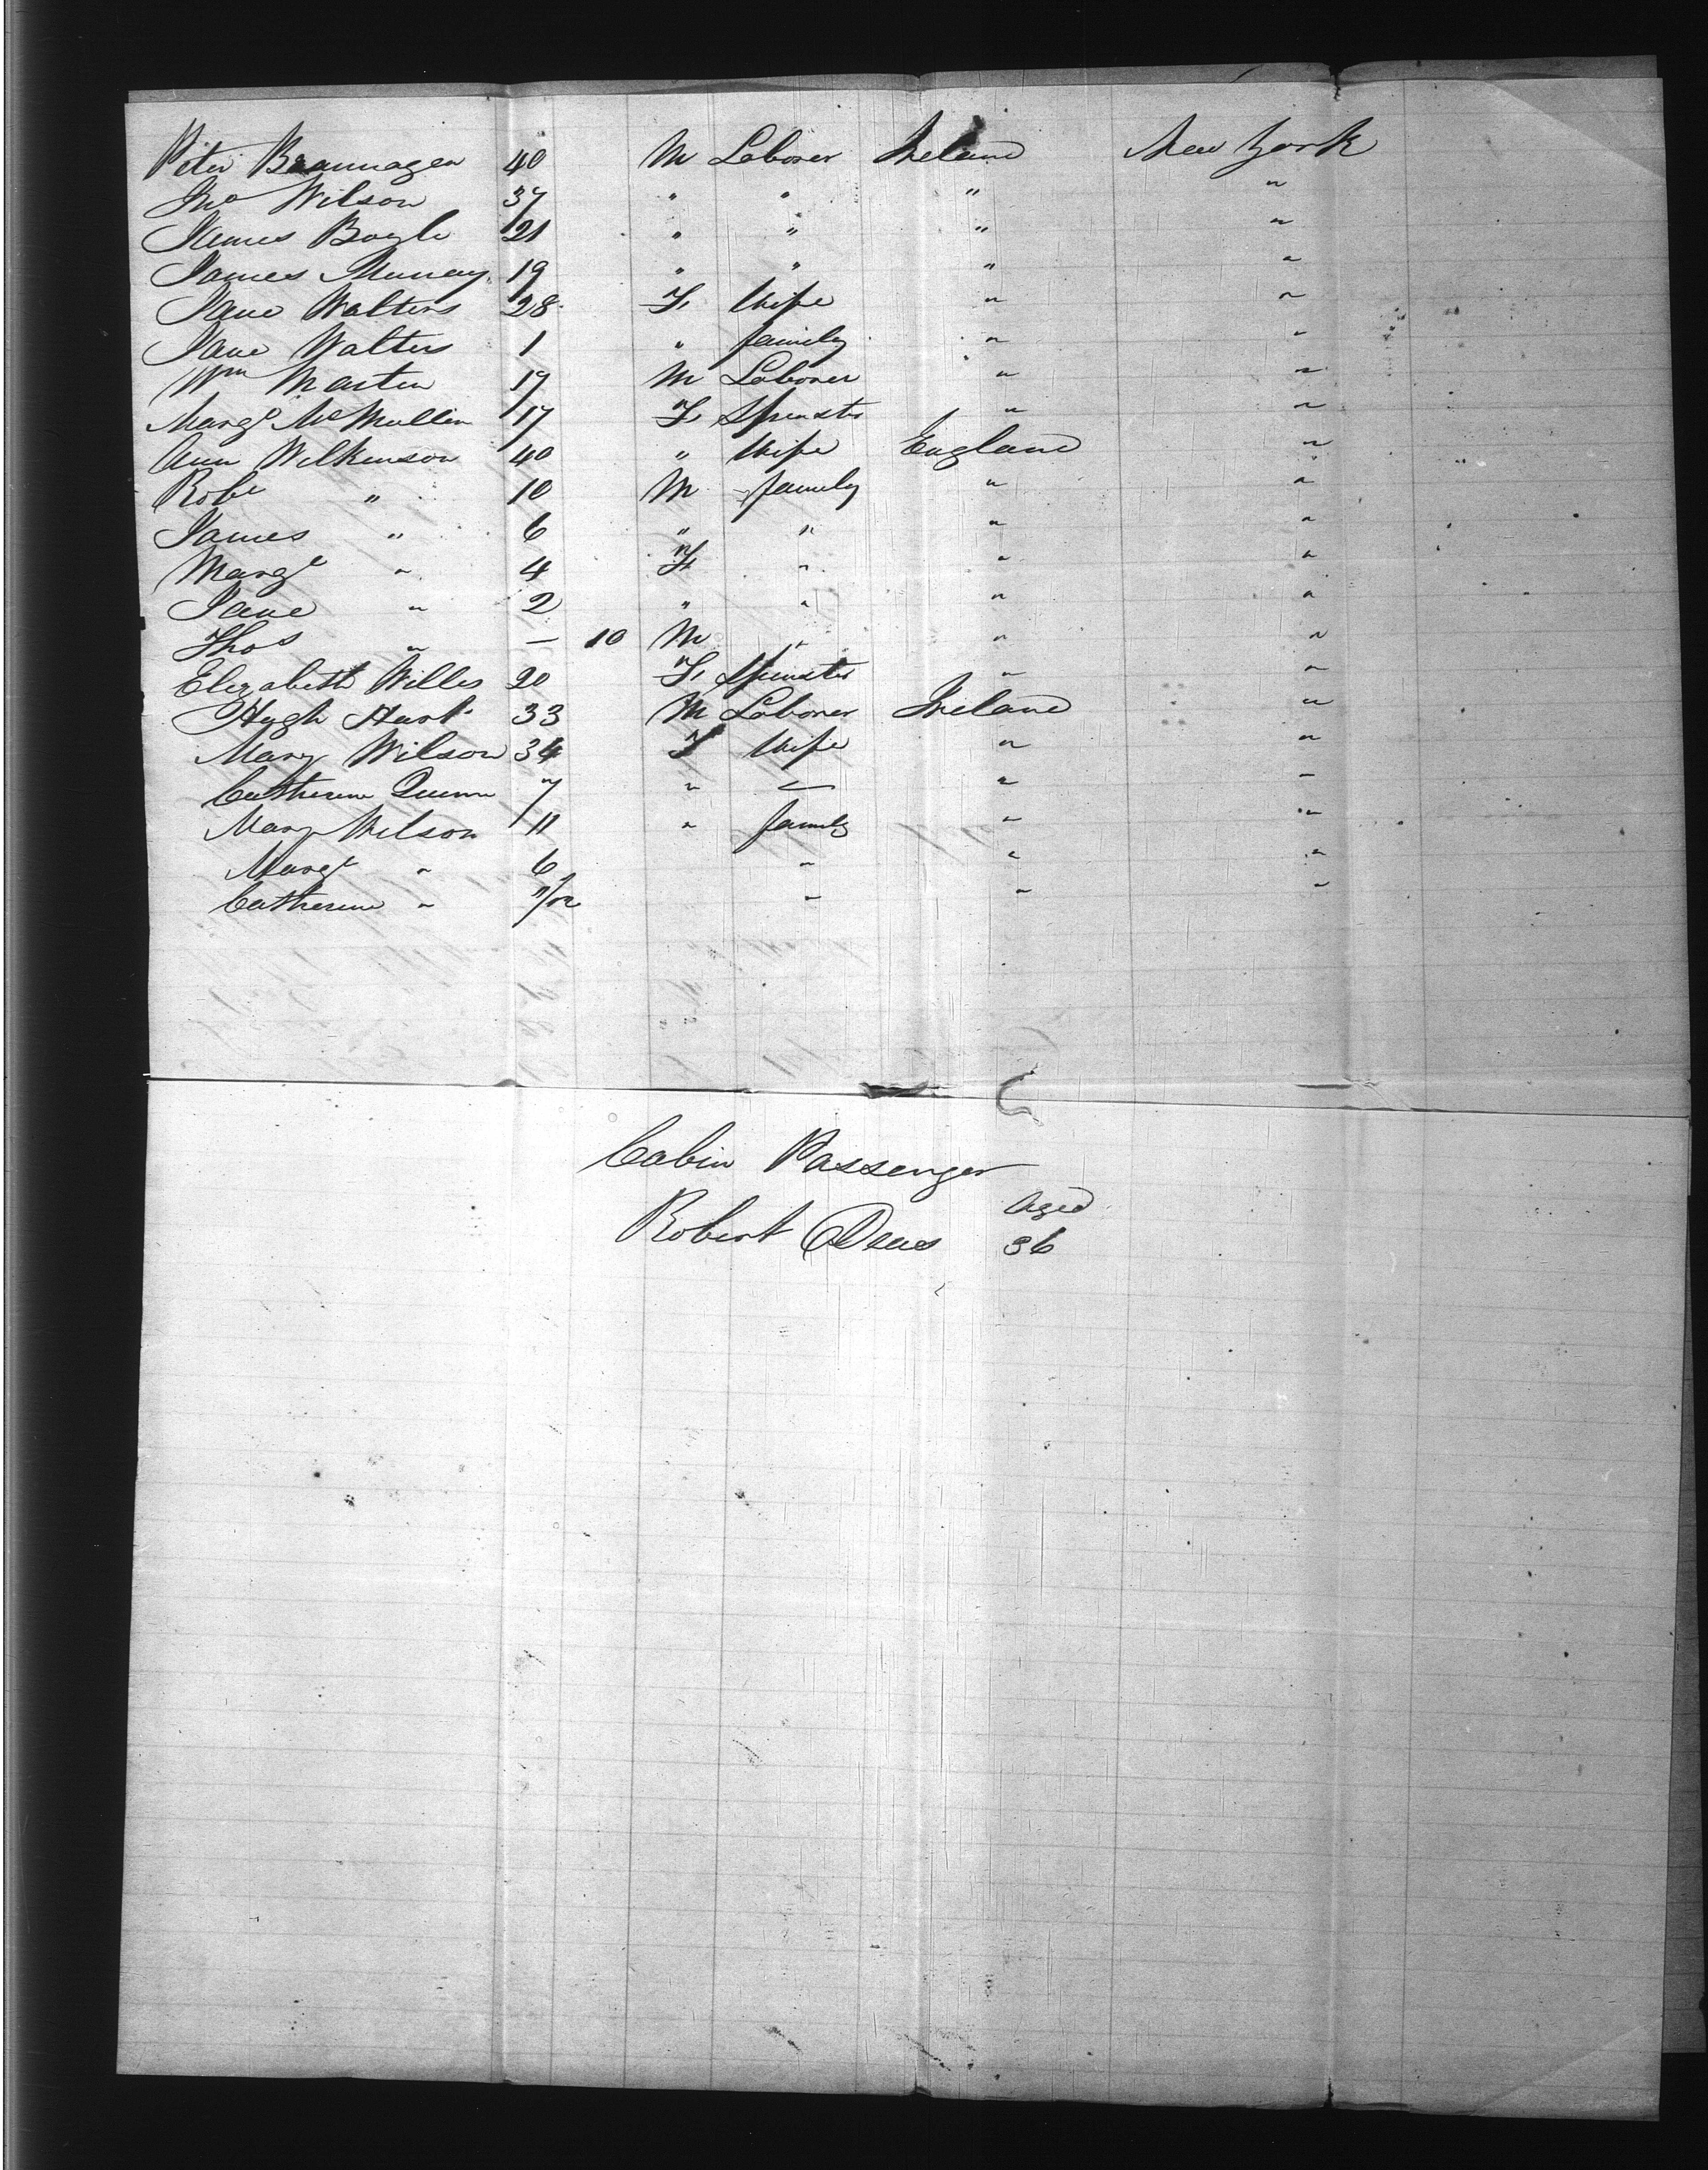 Peter Brannagen 40 M Laborer Ireland New York
Jno Wilson 37 " " " "
James Boyle 21 " " " "
James Murray 19 " " " "
Jane Walters 28 F Wife " "
Jane Walters 1 " family " "
Wm Martin 19 M Laborer " "
Margt McMullen 17 F Spinster " "
Ann Wilkinson 40 " Wife England "
Robt " 10 M family " "
James " 6 " " " "
Margt " 4 F " " "
Jane " 2 " " " "
Thos " — 10 M " " "
Elizabeth Willis 20 F Spinster " "
Hugh Hart 33 M Laborer Ireland "
Mary Wilson 34 F Wife " "
Catherine Quinn 7 " — " "
Mary Wilson 11 " family " "
Margt " 6 " " "
Catherine " /12 " " "
Cabin Passenger
Aged
Robert 36